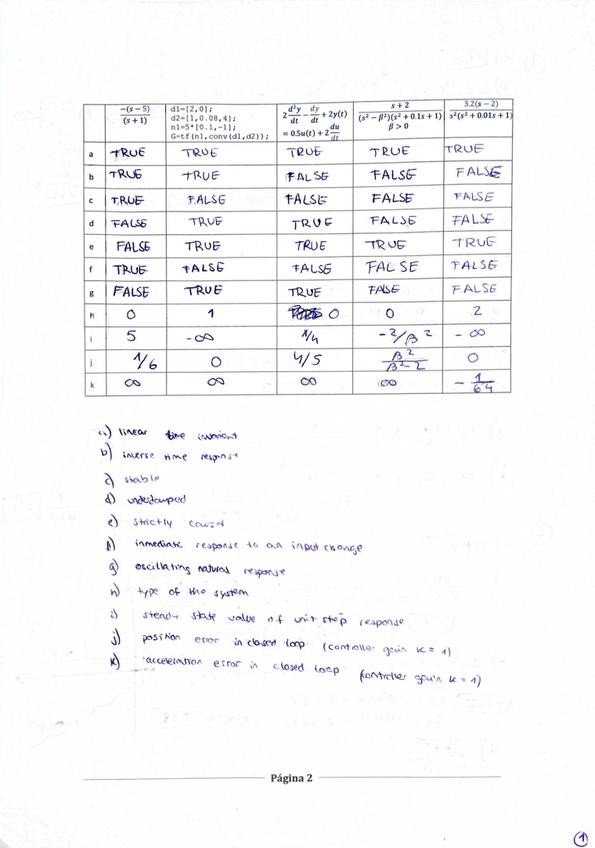 −(s − 5) / (s + 1)
d1=[2,0];
d2=[1,0.08,4];
n1=5*[0.1,-1];
G=tf(n1,conv(d1,d2));
2 d²y/dt − dy/dt + 2y(t)
= 0.5u(t) + 2 du/dt
s + 2 / (s² − β²)(s² + 0.1s + 1)
β > 0
3.2(s − 2) / s²(s² + 0.01s + 1)
a TRUE TRUE TRUE TRUE TRUE
b TRUE TRUE FALSE FALSE FALSE
c TRUE FALSE FALSE FALSE FALSE
d FALSE TRUE TRUE FALSE FALSE
e FALSE TRUE TRUE TRUE TRUE
f TRUE FALSE FALSE FALSE FALSE
g FALSE TRUE TRUE FALSE FALSE
h 0 1 0 0 2
i 5 -∞ 1/4 -2/β² -∞
j 1/6 0 4/5 β²/β²-2 0
k ∞ ∞ ∞ ∞ -1/64
a) linear time invariant
b) inverse time response
c) stable
d) underdamped
e) strictly causal
f) inmediate response to an input change
g) oscillating natural response
h) type of the system
i) steady state value of unit step response
j) position error in closed loop (controller gain k = 1)
k) acceleration error in closed loop (controller gain k = 1)
Página 2
1